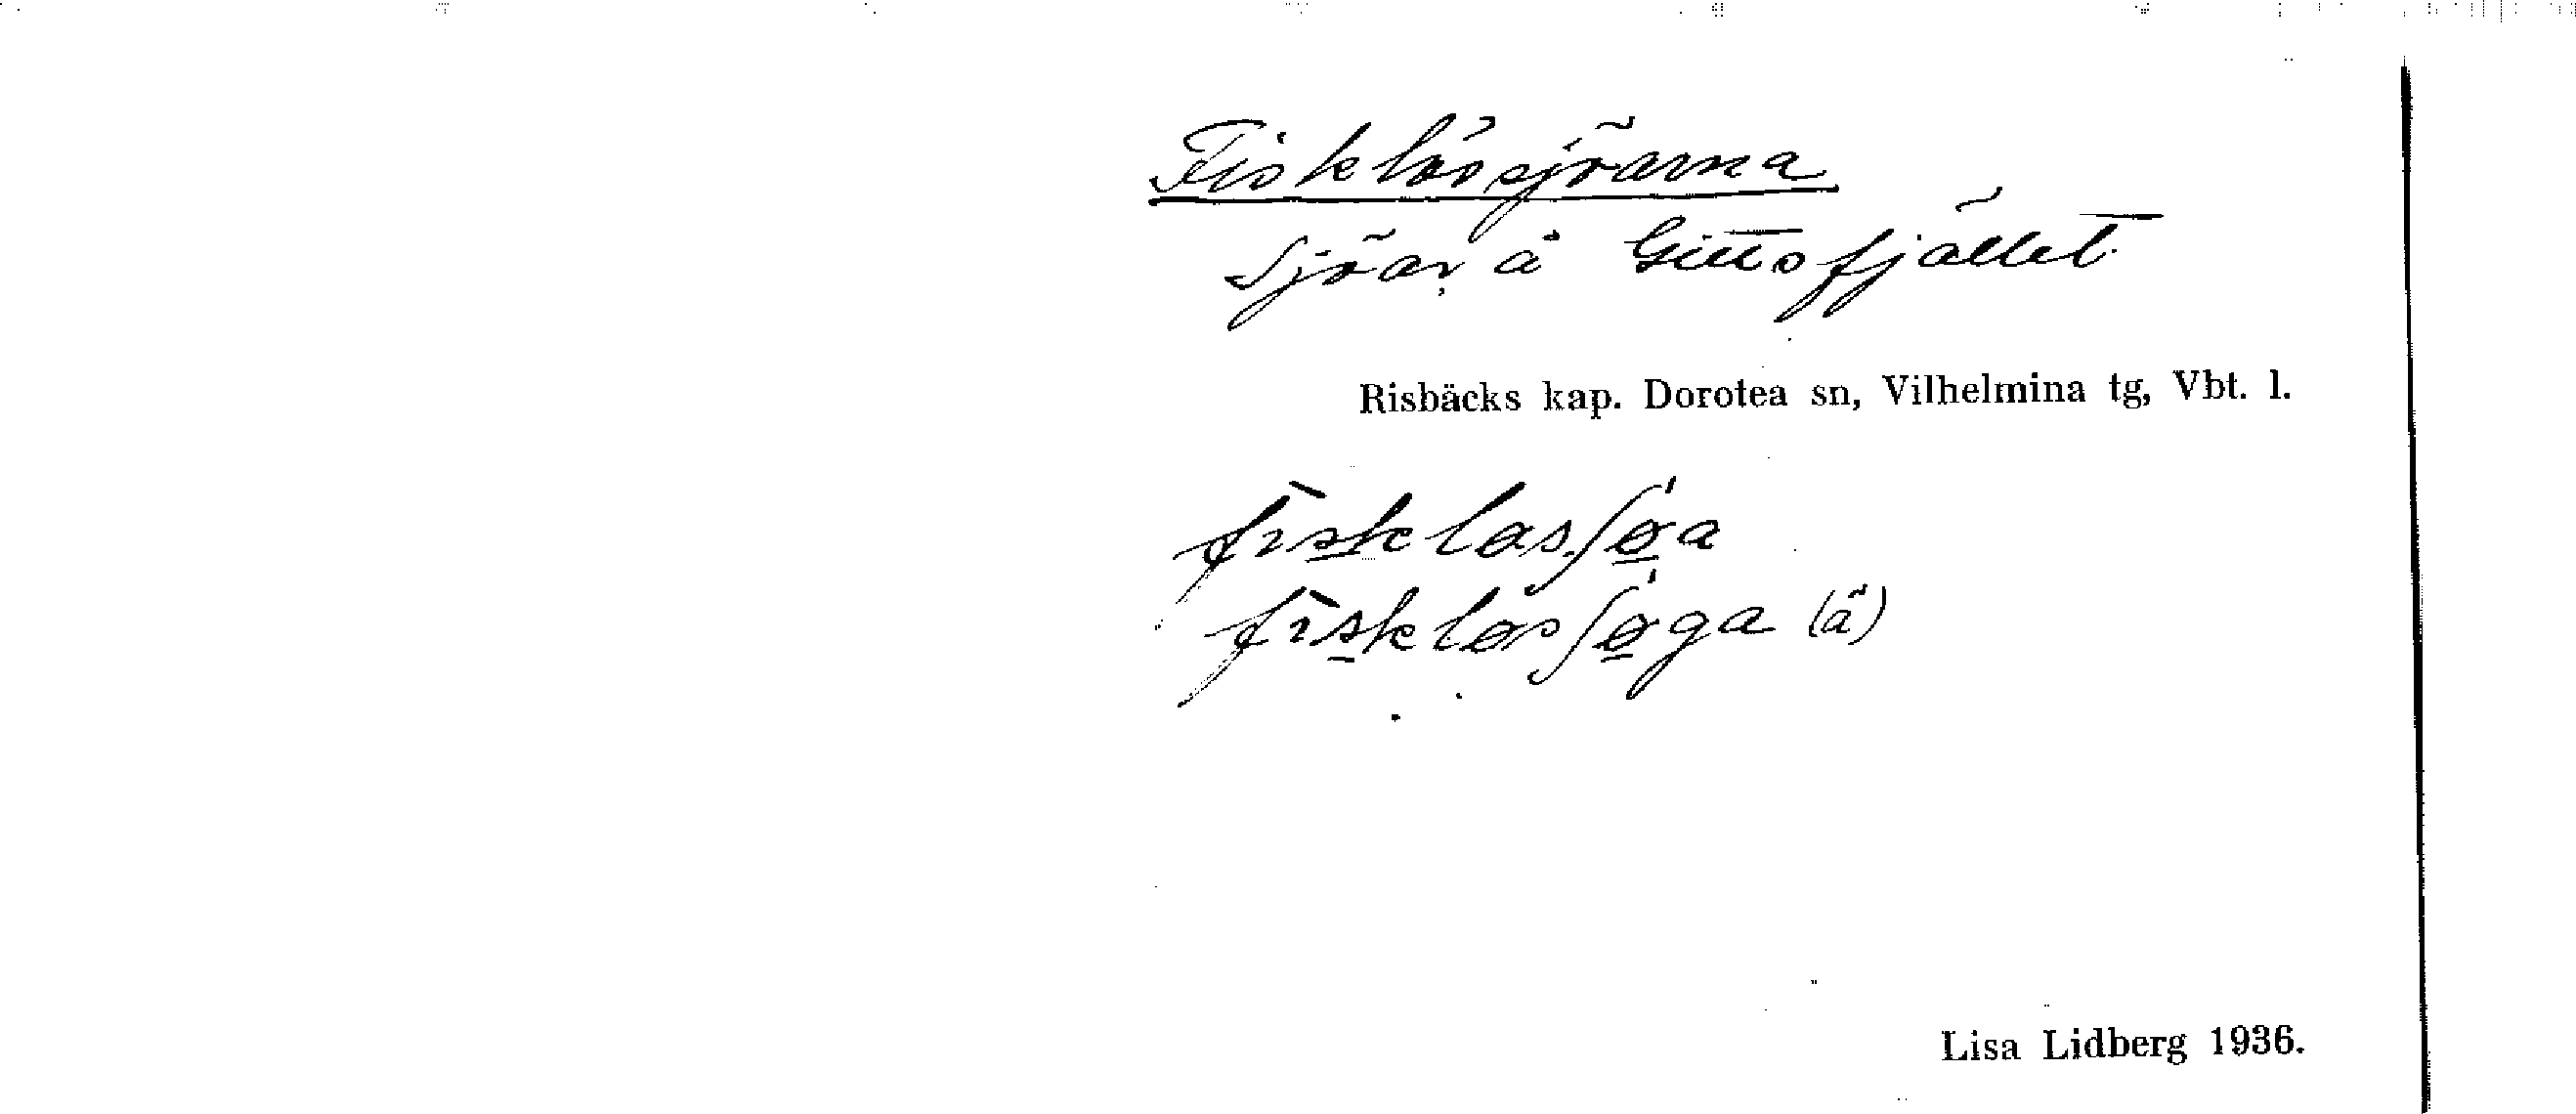 Fisklössjöarna
Sjöar å Gittsfjället
Risbäcks kap. Dorotea sn, Vilhelmina tg, Vbt. l.
fìskløsʃǿ̱a
fìskløsʃǿ̱ga (ä)
Lisa Lidberg 1936.